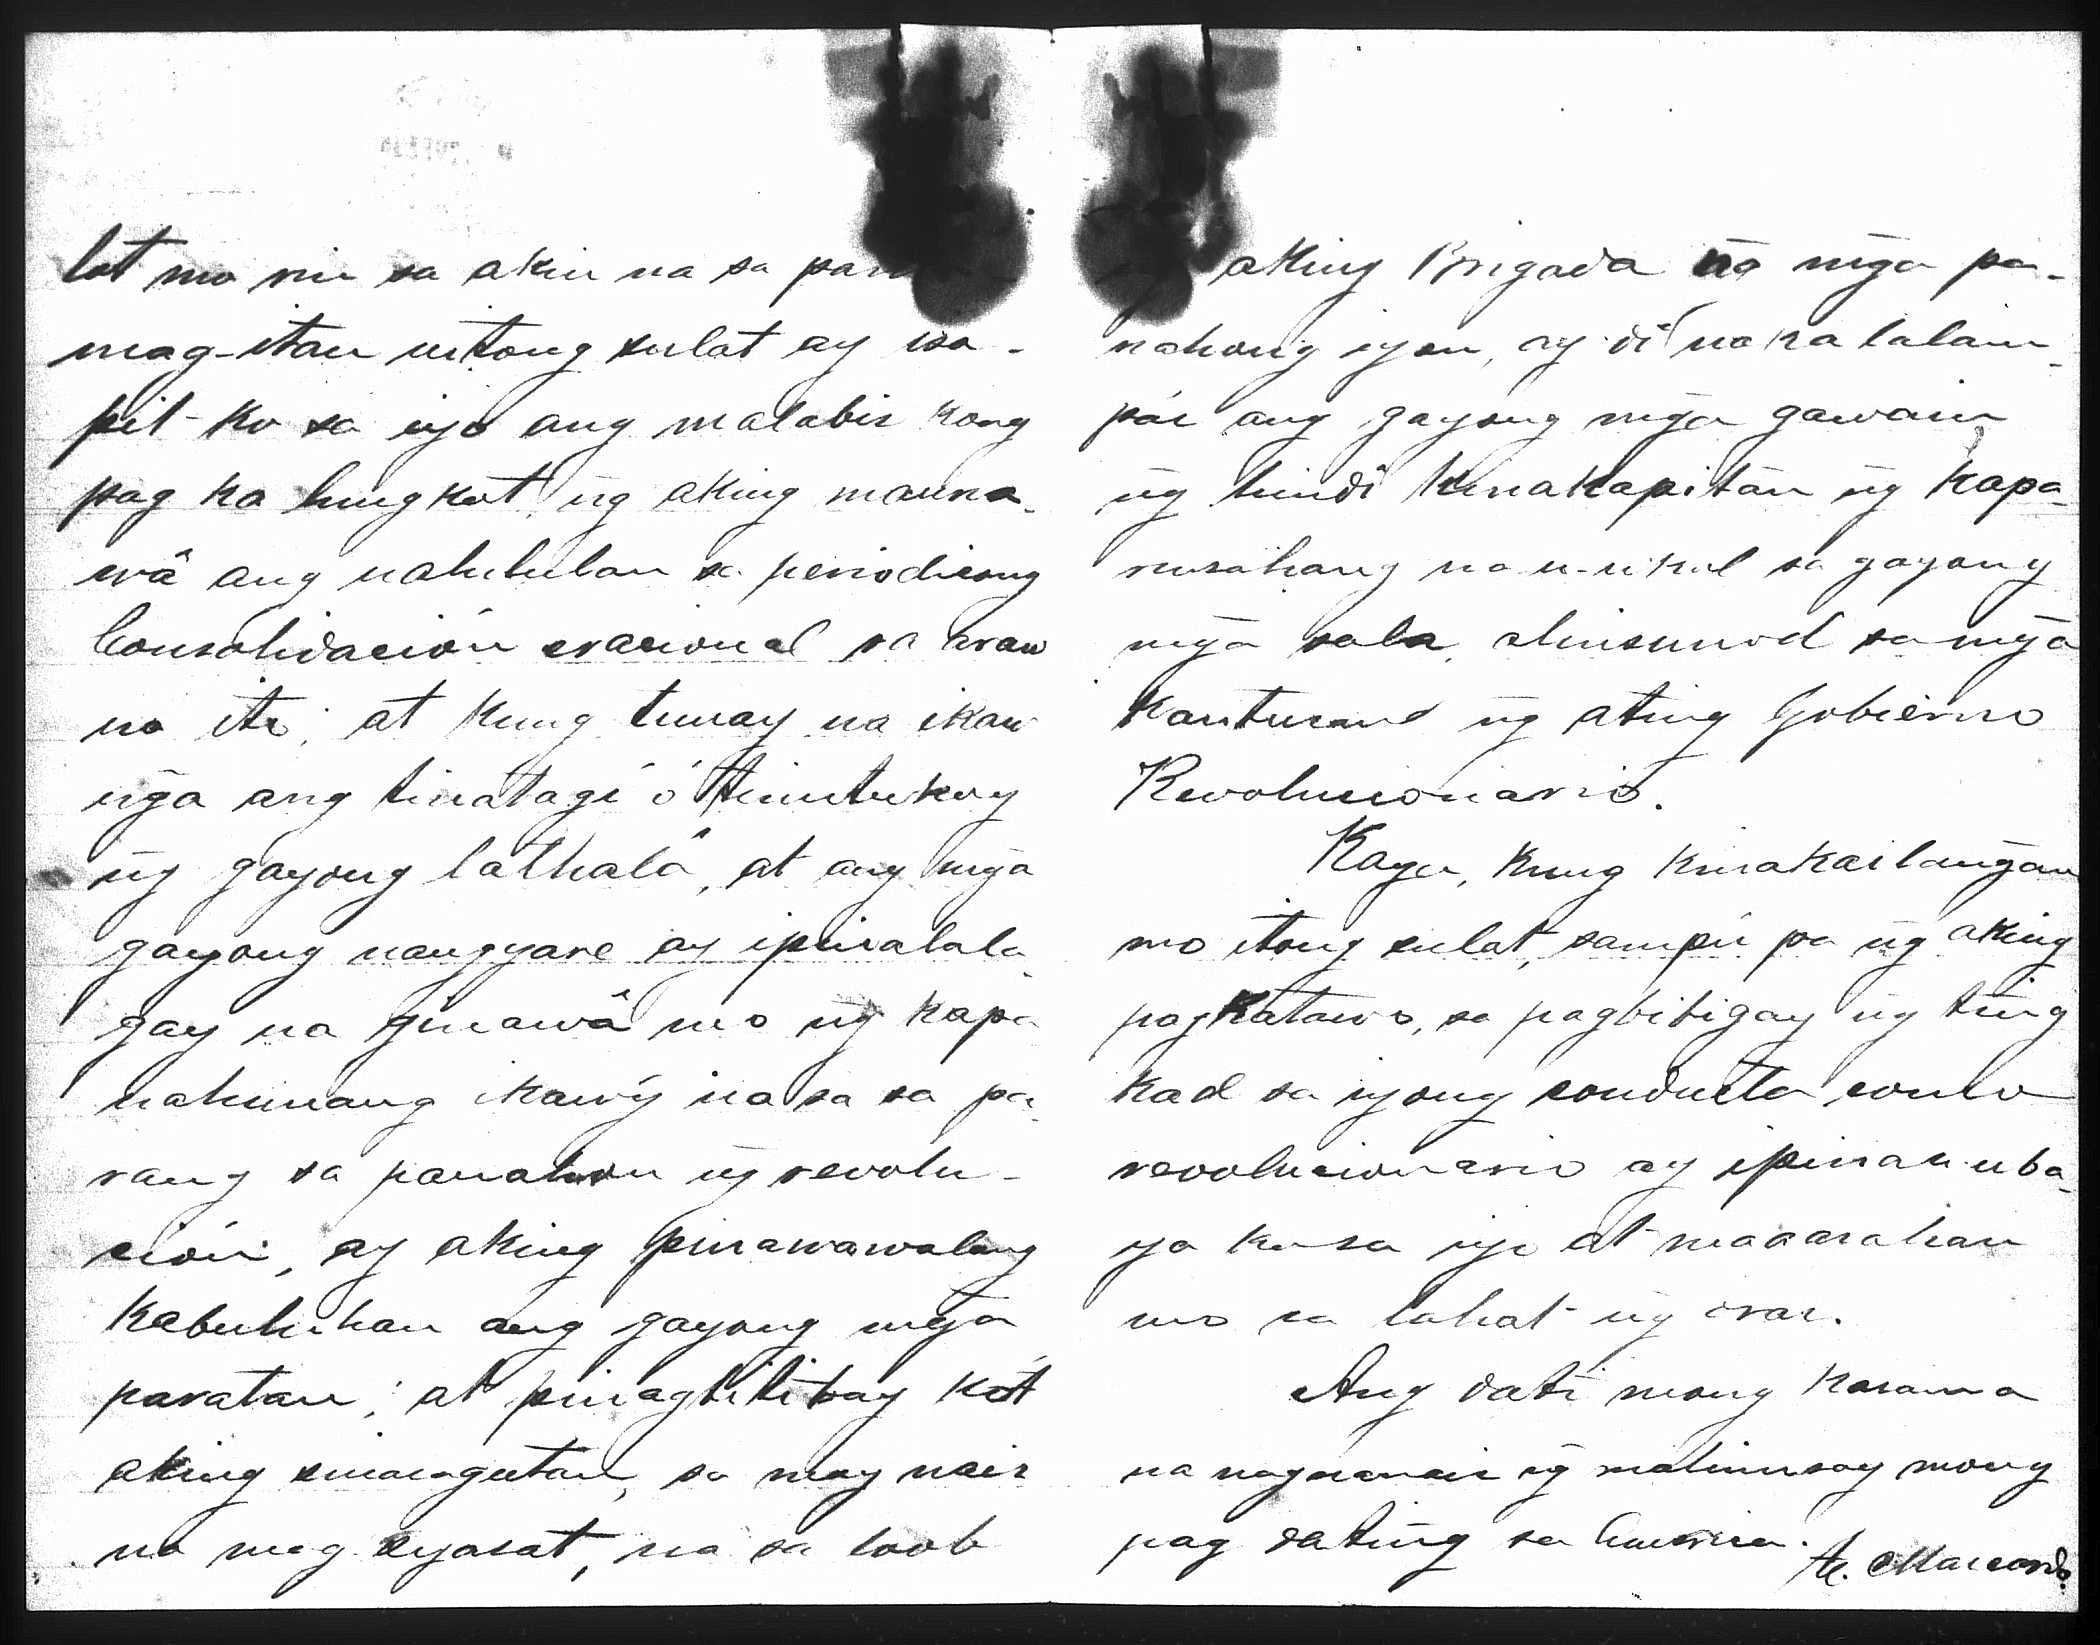 lot mo rin sa akin na sa
mag-itan nitong sulat ay isa-
pit-ko sa iyo ang malabis kong
pag ka lungkot ng aking mauna-
wâ ang nalululan sa periodicong
Consolidación Nacional sa araw
na ito; at kung tunay na ikaw
ñga ang tinatagì ó tinutukoy
ng̃ gayong lathalà, at ang mg̃a
gayong nangyare ay ipinalala-
gay na ginawâ mo ng̃ kapa
nahunang ikaw'y na sa sa pa-
rang sa panahon ng̃ revolu-
ción, ay aking pinawawalang
kabuluhan ang gayong mg̃a
paratan; at pinagtitibay kó't
aking sinasagutan, sa may nais
na mag siyasat, na sa loob
aking Brigada ng̃ mg̃a pa-
nahong iyon, ay di nakalalam-
pás ang gayong mg̃a gawain
ng̃ hindî kinakapitan ng̃ kapa-
rusahang na u-ukol sa gayong
mg̃a sala, alinsunod sa mg̃a
kautusan ng̃ ating Gobierno
Revolucionario.
Kaya, kung kinakailang̃an
mo itong sulat, sampú pa ng̃ aking
pagkatawo, sa pagbibigay ng̃ ting
kad sa iyong conducta como
revolucionario ay ipinau-uba-
ya ko sa iyo at maaasahan
mo sa lahat ng̃ oras.
Ang dati mong kasama
na nagnanais ng̃ matiwasay mong
pag dating sa America.
M.